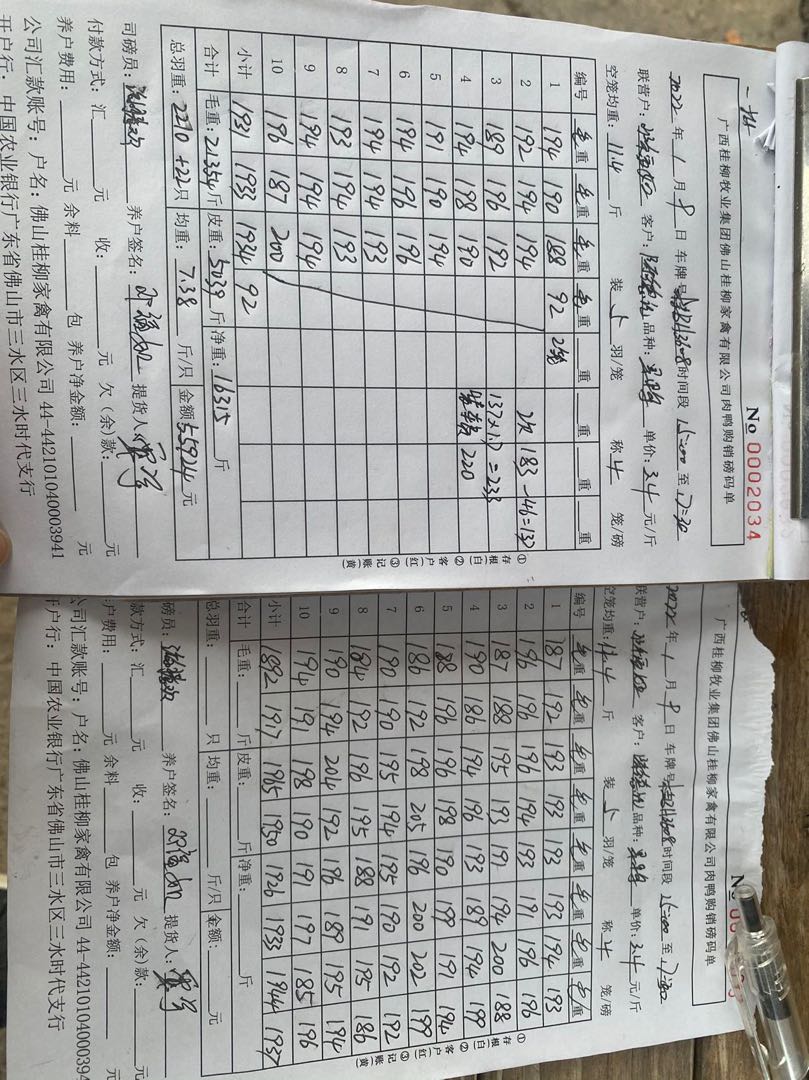 广西桂柳牧业集团佛山桂柳家禽有限公司肉鸭购销磅码单
№ 0002034
2022年1月9日 车牌号: 时间段 15:00 至 17:30
联营户: 客户: 品种: 单价: 3.4 元/斤
空笼均重: 11.4 斤 装 5 羽/笼 称 4 笼/磅
编号 毛重 毛重 毛重 毛重 重 重 重 重
1 194 190 188 92 2笼
2 192 194 194 2次 183-46=137
3 189 196 192 137×1.7=233
4 194 198 190 220
5 191 190 194
6 194 196 196
7 194 194 193
8 193 194 193
9 194 194 194
10 196 187 200
小计 1931 1933 1934 92
合计 毛重: 21354 斤 皮重: 5039 斤 净重: 16315 斤
总羽重: 2210+22 只 均重: 7.38 斤/只 金额: 55924 元
司磅员: 养户签名: 提货人:
付款方式: 汇 元 收: 元 欠(余)款: 元
养户费用: 元 余料 包 养户净金额: 元
公司汇款账号: 户名: 佛山桂柳家禽有限公司 44-442101040003941
开户行: 中国农业银行广东省佛山市三水区三水时代支行
①存根(白) ②客户(红) ③记账(黄)
广西桂柳牧业集团佛山桂柳家禽有限公司肉鸭购销磅码单
№ 00
2022年1月9日 车牌号: 时间段 15:00 至 17:30
联营户: 客户: 品种: 单价: 3.4 元/斤
空笼均重: 11.4 斤 装 5 羽/笼 称 4 笼/磅
编号 毛重 毛重 毛重 毛重 毛重 毛重 毛重 毛重
1 187 192 193 193 193 193 194 193
2 196 196 196 194 191 191 196 196
3 187 188 195 193 191 194 200 188
4 190 186 194 196 193 189 194 199
5 188 196 196 198 190 199 191 194
6 186 192 198 205 196 200 202 199
7 190 190 195 194 195 190 192 192
8 184 192 196 195 188 191 195 186
9 190 194 204 192 196 189 195 194
10 194 191 198 190 191 197 185 196
小计 1892 1917 1965 1950 1926 1933 1944 1937
合计 毛重: 斤 皮重: 斤 净重: 斤
总羽重: 只 均重: 斤/只 金额: 元
磅员: 养户签名: 提货人:
款方式: 汇 元 收: 元 欠(余)款: 元
户费用: 元 余料 包 养户净金额: 元
公司汇款账号: 户名: 佛山桂柳家禽有限公司 44-4421010400394
户行: 中国农业银行广东省佛山市三水区三水时代支行
①存根(白) ②客户(红) ③记账(黄)